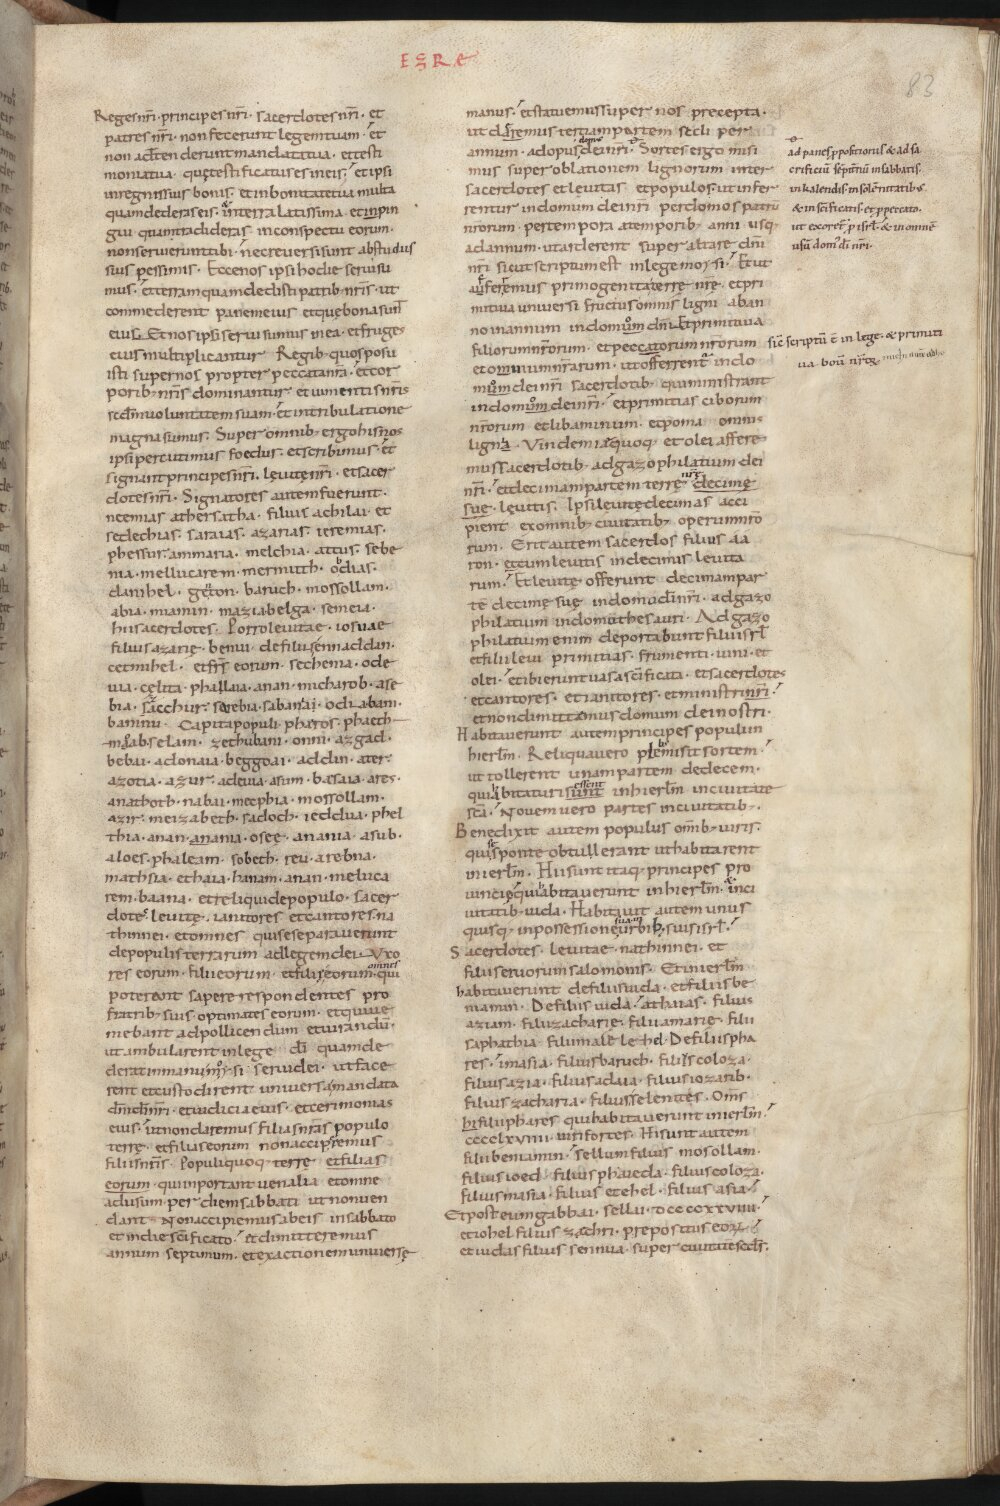 EZRE
83
Reges nr̄i · principes nr̄i · sacerdotes nr̄i · et
patres nr̄i · non fecerunt legem tuam · et
non adtenderunt mandata tua · et testi
monia tua · quę testificatus es in eis · et ipsi
in regnis suis bonis · et in bonitate tua multa
quam dederas eis · in terra latissima · et inpin
gui quam tradideras in conspectu eorum ·
non servierunt tibi · nec reversi sunt ab studiis
suis pessimis · Ecce nos ipsi hodie servi su
mus · et terram quam dedisti patrib; nr̄is · ut
commederent panem eius et quę bona sunt
eius · Et nos ipsi servi sumus in ea · et fruges
eius multiplicantur · Regib; quos posu
isti super nos propter peccata nr̄a · et cor
porib; nr̄is dominantur et iumentis nr̄is
scdm̄ voluntatem suam · et in tribulatione
magna sumus · Super omnib; ergo his nos
ipsi percutimus foedus · et scribimus · et
signant principes nr̄i · levitę nr̄i · et sacer
dotes nr̄i · Signatores autem fuerunt ·
neemias athersatha · filius achilai · et
sedechias · saraias · azarias · ieremias ·
phessur · ammaria · melchia · attus · sebe
nia · melluc arem · mermuth · obdias ·
danihel · geton · baruch · mosollam ·
abia · miamin · mazia belga · semeia ·
hii sacerdotes · Porro levitae · iosuae
filius azarię · bennui de filiis ennaddan ·
cetmihel · et frs̄ eorum · sechenia · ode
via · celita · phallaia · anan · micha rob · ase
bia · sacchur · serebia · sabanai · odia bani ·
baninu · Capita populi · pharos · phaeth
moab selam · zethu bani · onni · azgad ·
bebai · adonaia · beggoai · addin · ater ·
azotia · azur · adevia · asum · basaia · ares ·
anathoth · nabai · mecphia · mossollam ·
azir · meizabeth · sadoch · ieddua · phel
thia · anan · anania · osee · anania · asub ·
aloes · phaleam · sobech · reu · arebna ·
mathsia · et haia · hanam · anan · meluca
rem · baana · et reliqui de populo · sacer
dotes · levitę · ianitores et cantores · na
thinnei · et omnes qui se separaverunt
de populis terrarum ad legem dei · Uxo
res eorum · filii eorum · et filię eorum · omnes qui
poterant sapere respondentes pro
fratrib; suis · optimates eorum · et qui ve
niebant ad pollicendum et iurandū ·
ut ambularent in lege dī quam de
derat in manu moysi · servi dei · ut face
rent et custodirent universa mandata
dn̄i dī nr̄i · et iudicia eius · et cerimonias
eius · ut non daremus filias nr̄as populo
terrę · et filias eorum non acciperemus
filiis nr̄is · Populi quoq; terrę et filias
eorum · qui inportant venalia · et omne
ad usum · per diem sabbati ut nonven
dant · Non accipiemus ab eis in sabbato
et in die scīficato · et dimitteremus
annum septimum · et exactionem universę
manus · et statuemus super nos precepta ·
ut daremus tertiam partem secli per
annum · ad opus domus dei nr̄i · Sortes ergo misi
mus super oblationem lignorum inter
sacerdotes et levitas et populos · ut infer
rentur in domum dei nr̄i per domos patrū
nr̄orum · per tempora a temporib; anni usq;
ad annum · ut arderent super altare dn̄i
nr̄i sicut scriptum est in lege moysi · Et ut
afferemus primogenita terrę nr̄ę · et pri
mitiva universi fructus omnis ligni ab an
no in annum in domum dn̄i · Et primitiva
filiorum nr̄orum · et peccatorum nr̄orum
et omnium nr̄arum · ut offerrent in do
mum dei nr̄i sacerdotib; qui ministrant
in domum dei nr̄i · et primitias ciborum
nr̄orum et libaminum · et poma omnis
ligna · Vindemię quoq; et olei affere
mus sacerdotib; ad gazophilatium dei
nr̄i · et decimam partem terrę nr̄ę decimę
suę · levitis · Ipsi levitę decimas acci
pient ex omnib; civitatib; operum nr̄o
rum · Erit autem sacerdos filius aa
ron · et cum levitis in decimis levita
rum · Et levitę offerunt decimam par
tē decimę suę in domū dī nr̄i · ad gazo
philatium in domū thesauri · Ad gazo
philatium enim deportabunt filii isrl̄
et filii levi primitias · frumenti · vini · et
olei · et ibi erunt vasa scīficata · et sacerdotes
et cantores · et ianitores · et ministri nr̄i ·
et non dimittamus domum dei nostri ·
Habitaverunt autem principes populi in
hierlm̄ · Reliqua vero plebs misit sortem
ut tollerent unam partem de decem ·
qui habitaturi essent sunt in hierlm̄ in civitate
scā · Novem vero partes in civitatib; ·
Benedixit autem populus omīb; viris ·
qui se sponte obtullerant ut habitarent
in ierlm̄ · Hi sunt itaq; principes pro
vincię qui habitaverunt in hierlm̄ · et in ci
vitatib; iuda · Habitavit autem unus
quisq; in possessione sua in urbib; suis isrl̄ ·
Sacerdotes · levitae · nathinnei · et
filii servorum salomonis · Et in ierlm̄
habitaverunt de filiis iuda · et filiis be
niamin · De filiis iuda · athaias · filius
aziam · filii zacharię · filii amarię · filii
saphathia · filii malelehel · De filiis pha
res · imasia · filius baruch · filiis coloza ·
filius azia · filius adaia · filius iozarib ·
filius zacharia · filius selentes · Oms̄
hi filii phares qui habitaverunt in ierlm̄ ·
cccclxviii viri fortes · Hi sunt autem
filii beniamin · sellum filius mosollam ·
filius ioed · filius phaeda · filius coloza ·
filius masia · filius etehel · filius asia ·
Et post eum gabbai · sellii · Dccccxxviii ·
et iohel filius zachri · prepositus eorum
et iudas filius sennua · super civitatē scds̄ ·
ad panes ppositionis · & ad sa
crificiū sēpitnū in sabbatis ·
in kalendis in solēnitatib; ·
& in scīficatis · et p peccato ·
ut exoret p isrl̄ · & in omnē
usū dom' dī nr̄i ·
sic̄ scriptū ē in lege · & primiti
va boū nr̄oꝝ